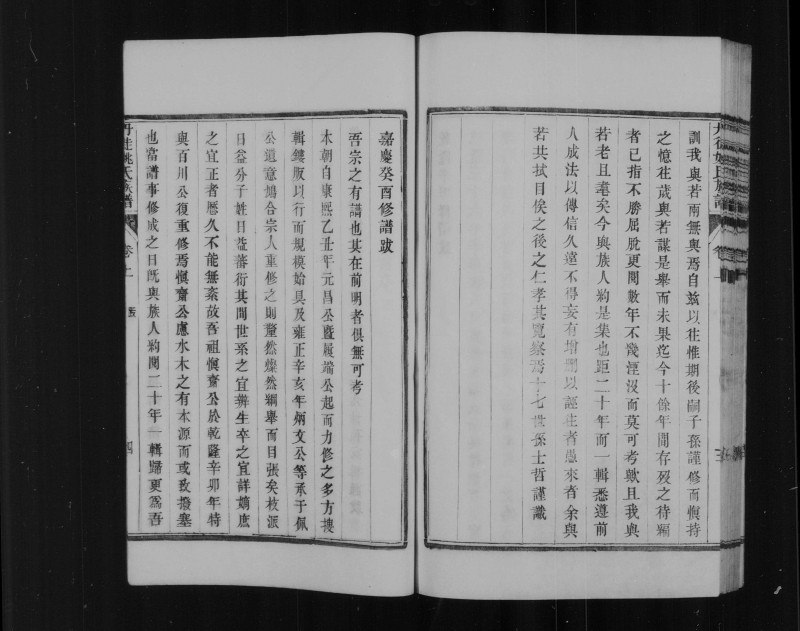 訓我與若兩無與焉自茲以往惟期後嗣子孫謹修而愼持
之憶往歲與若謀是舉而未果迄今十餘年間存歿之待續
者已指不勝屈脫更閱數年不幾湮沒而莫可考歟且我與
若老且耄矣今與族人約是集也距二十年而一輯悉遵前
人成法以傳信久遠不得妄有增刪以誣生者愚來者余與
若共拭目俟之後之仁孝其覽察焉十七世孫士哲謹識
嘉慶癸酉修譜跋
吾宗之有譜也其在前明者俱無可考
本朝自康熙乙丑年元昌公曁履端公起而力修之多方搜
輯鏤版以行而規模始具及雍正辛亥年炳文公等承于佩
公遺意鳩合宗人重修之則釐然燦然綱舉而目張矣枝派
日益分子姓日益蕃衍其間世系之宜辨生卒之宜詳嫡庶
之宜正者曆久不能無紊故吾祖愼齋公於乾隆辛卯年特
與百川公復重修焉愼齋公慮水木之有本源而或致撥塞
也當譜事修成之日旣與族人約閱二十年一輯歸更爲吾
丹徒姚氏族譜
卷上
跋
四